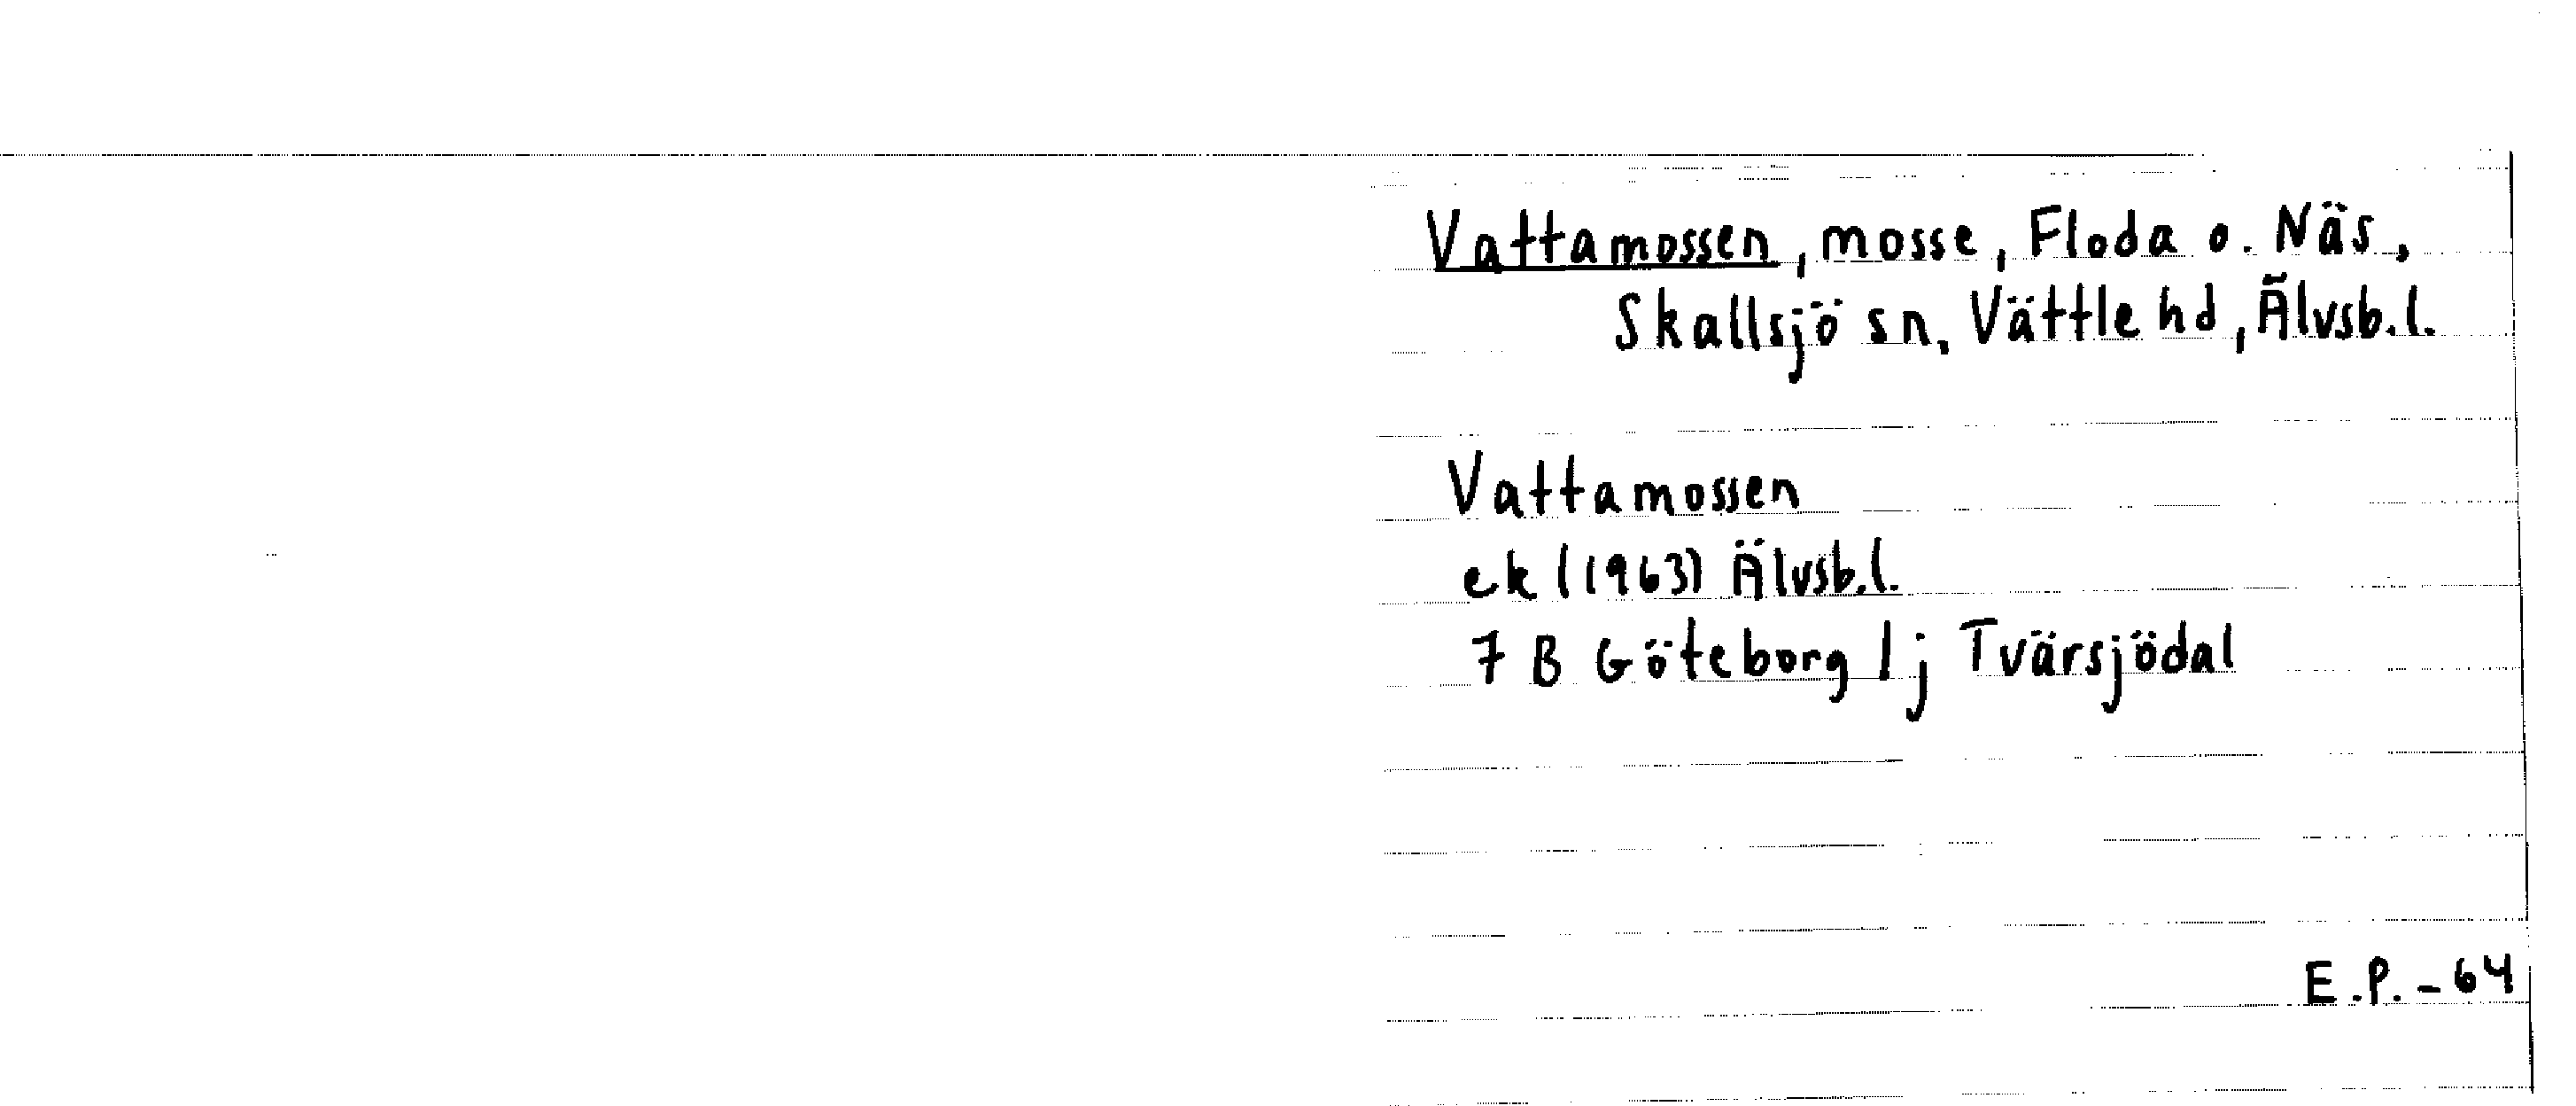 Vattamossen, mosse, Floda o. Näs,
Skallsjö sn, Vättle hd, Älvsb.l.
Vattamossen
ek (1963) Älvsb.l.
7 B Göteborg 1j Tvärsjödal
E.P.-64